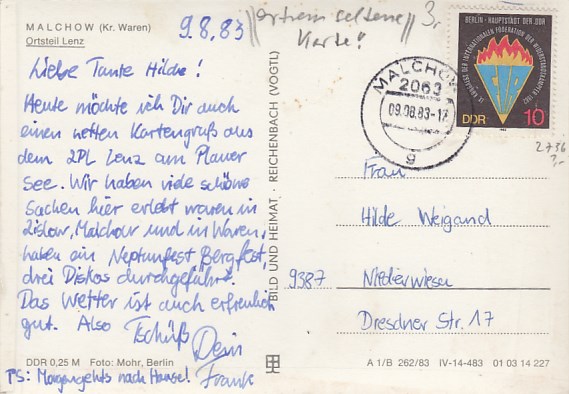 MALCHOW (Kr. Waren)
Ortsteil Lenz
9.8.83
"extrem seltene
Karte"
3,-
Liebe Tante Hilde!
Heute möchte ich Dir auch
einen netten Kartengruß aus
dem ZPL Lenz am Plauer
See. Wir haben viele schöne
Sachen hier erlebt waren in
Zislow, Malchow und in Waren,
haben ein Neptunfest, Bergfest,
drei Diskos durchgeführt.
Das Wetter ist auch erfreulich
gut. Also Tschüß
Dein
Frank
PS: Morgen gehts nach Hause!
DDR 0,25 M Foto: Mohr, Berlin
BILD UND HEIMAT · REICHENBACH (VOGTL)
MALCHOW
2063
09.08.83-17
g
BERLIN · HAUPTSTADT DER DDR
IX. KONGRESS DER INTERNATIONALEN FÖDERATION DER WIDERSTANDSKÄMPFER
FIR
DDR 10
2736
3,-
Frau
Hilde Weigand
9387 Niederwiesa
Dresdner Str. 17
A 1/B 262/83 IV-14-483 01 03 14 227